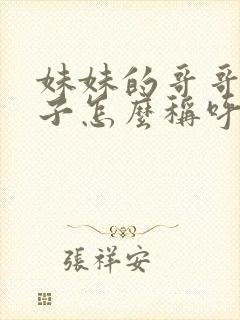 妹妹的哥哥
子怎麼稱呼
張祥安